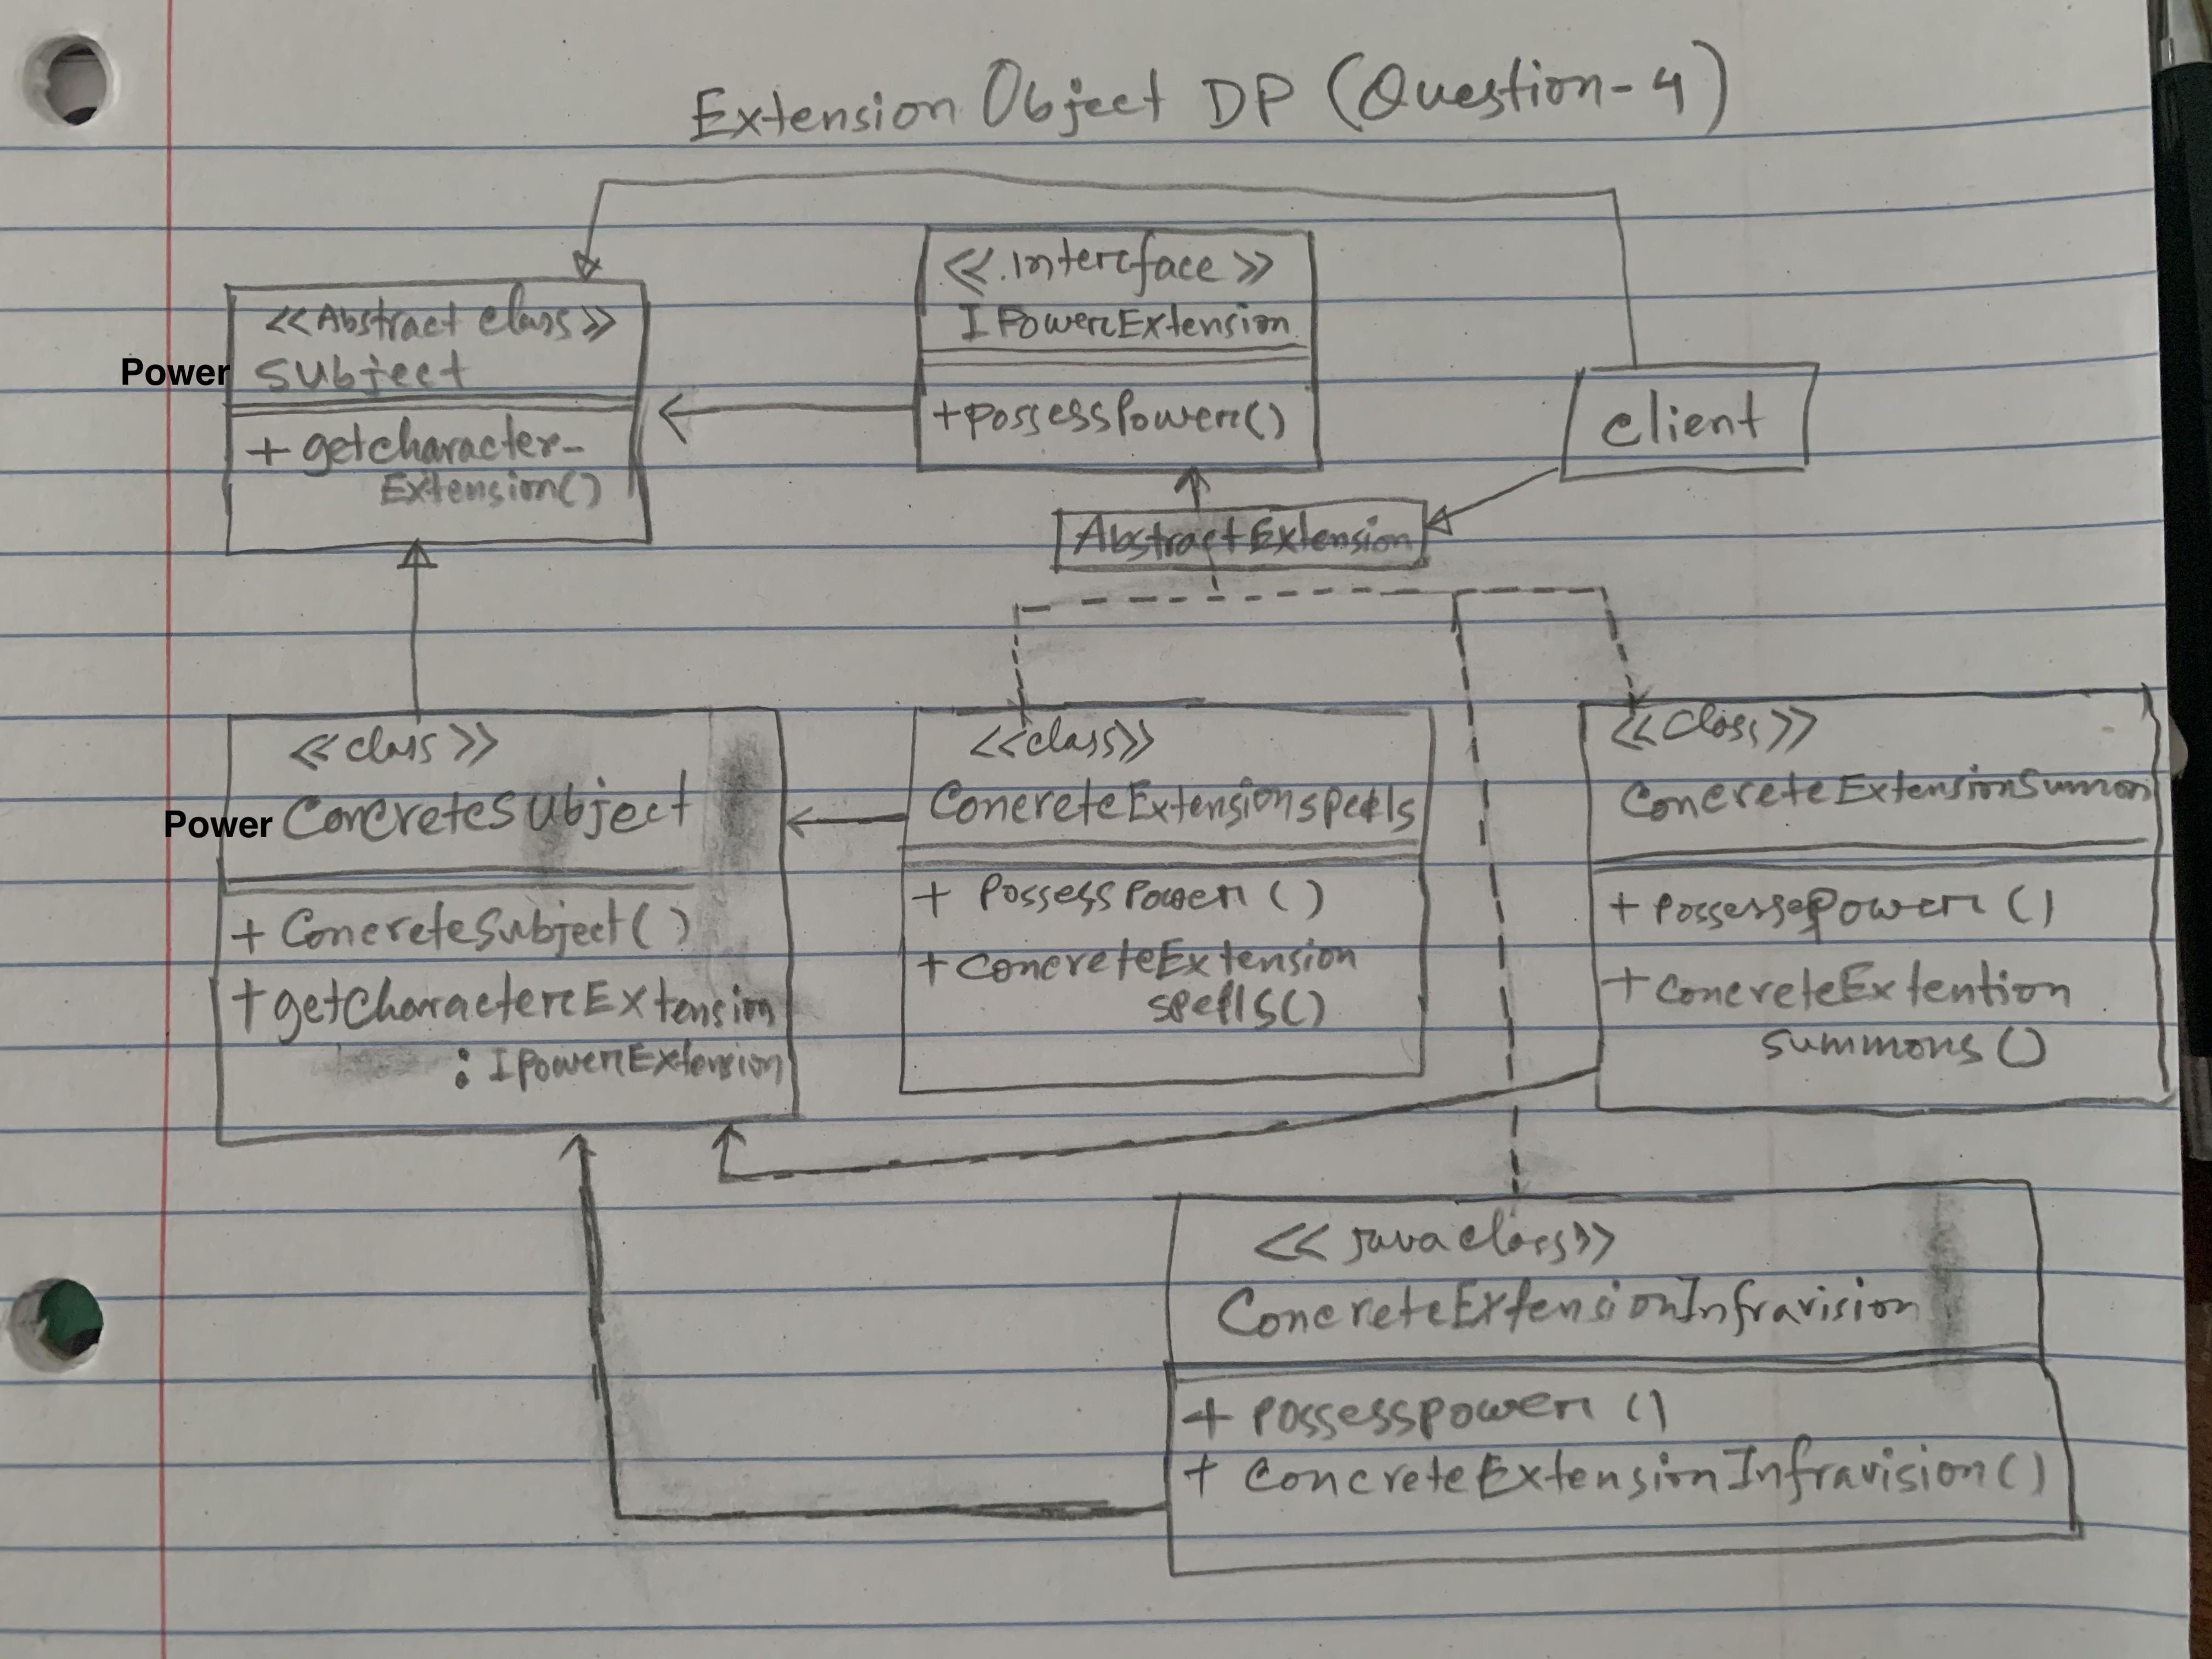 Extension Object DP (Question-4)
<<Abstract class>>
Power subject
+ getcharacter-
Extension()
<<interface>>
IPowerExtension
+possessPower()
client
AbstractExtension
<<class>>
Power ConcreteSubject
+ ConcreteSubject()
+ getCharacterExtension
: IPowerExtension
<<class>>
ConcreteExtensionspells
+ PossessPower()
+ concreteExtension
spells()
<<Class>>
ConcreteExtensionSummon
+ possessePower()
+ concreteExtention
summons()
<<java class>>
ConcreteExtensionInfravision
+ possesspower()
+ concreteExtensionInfravision()